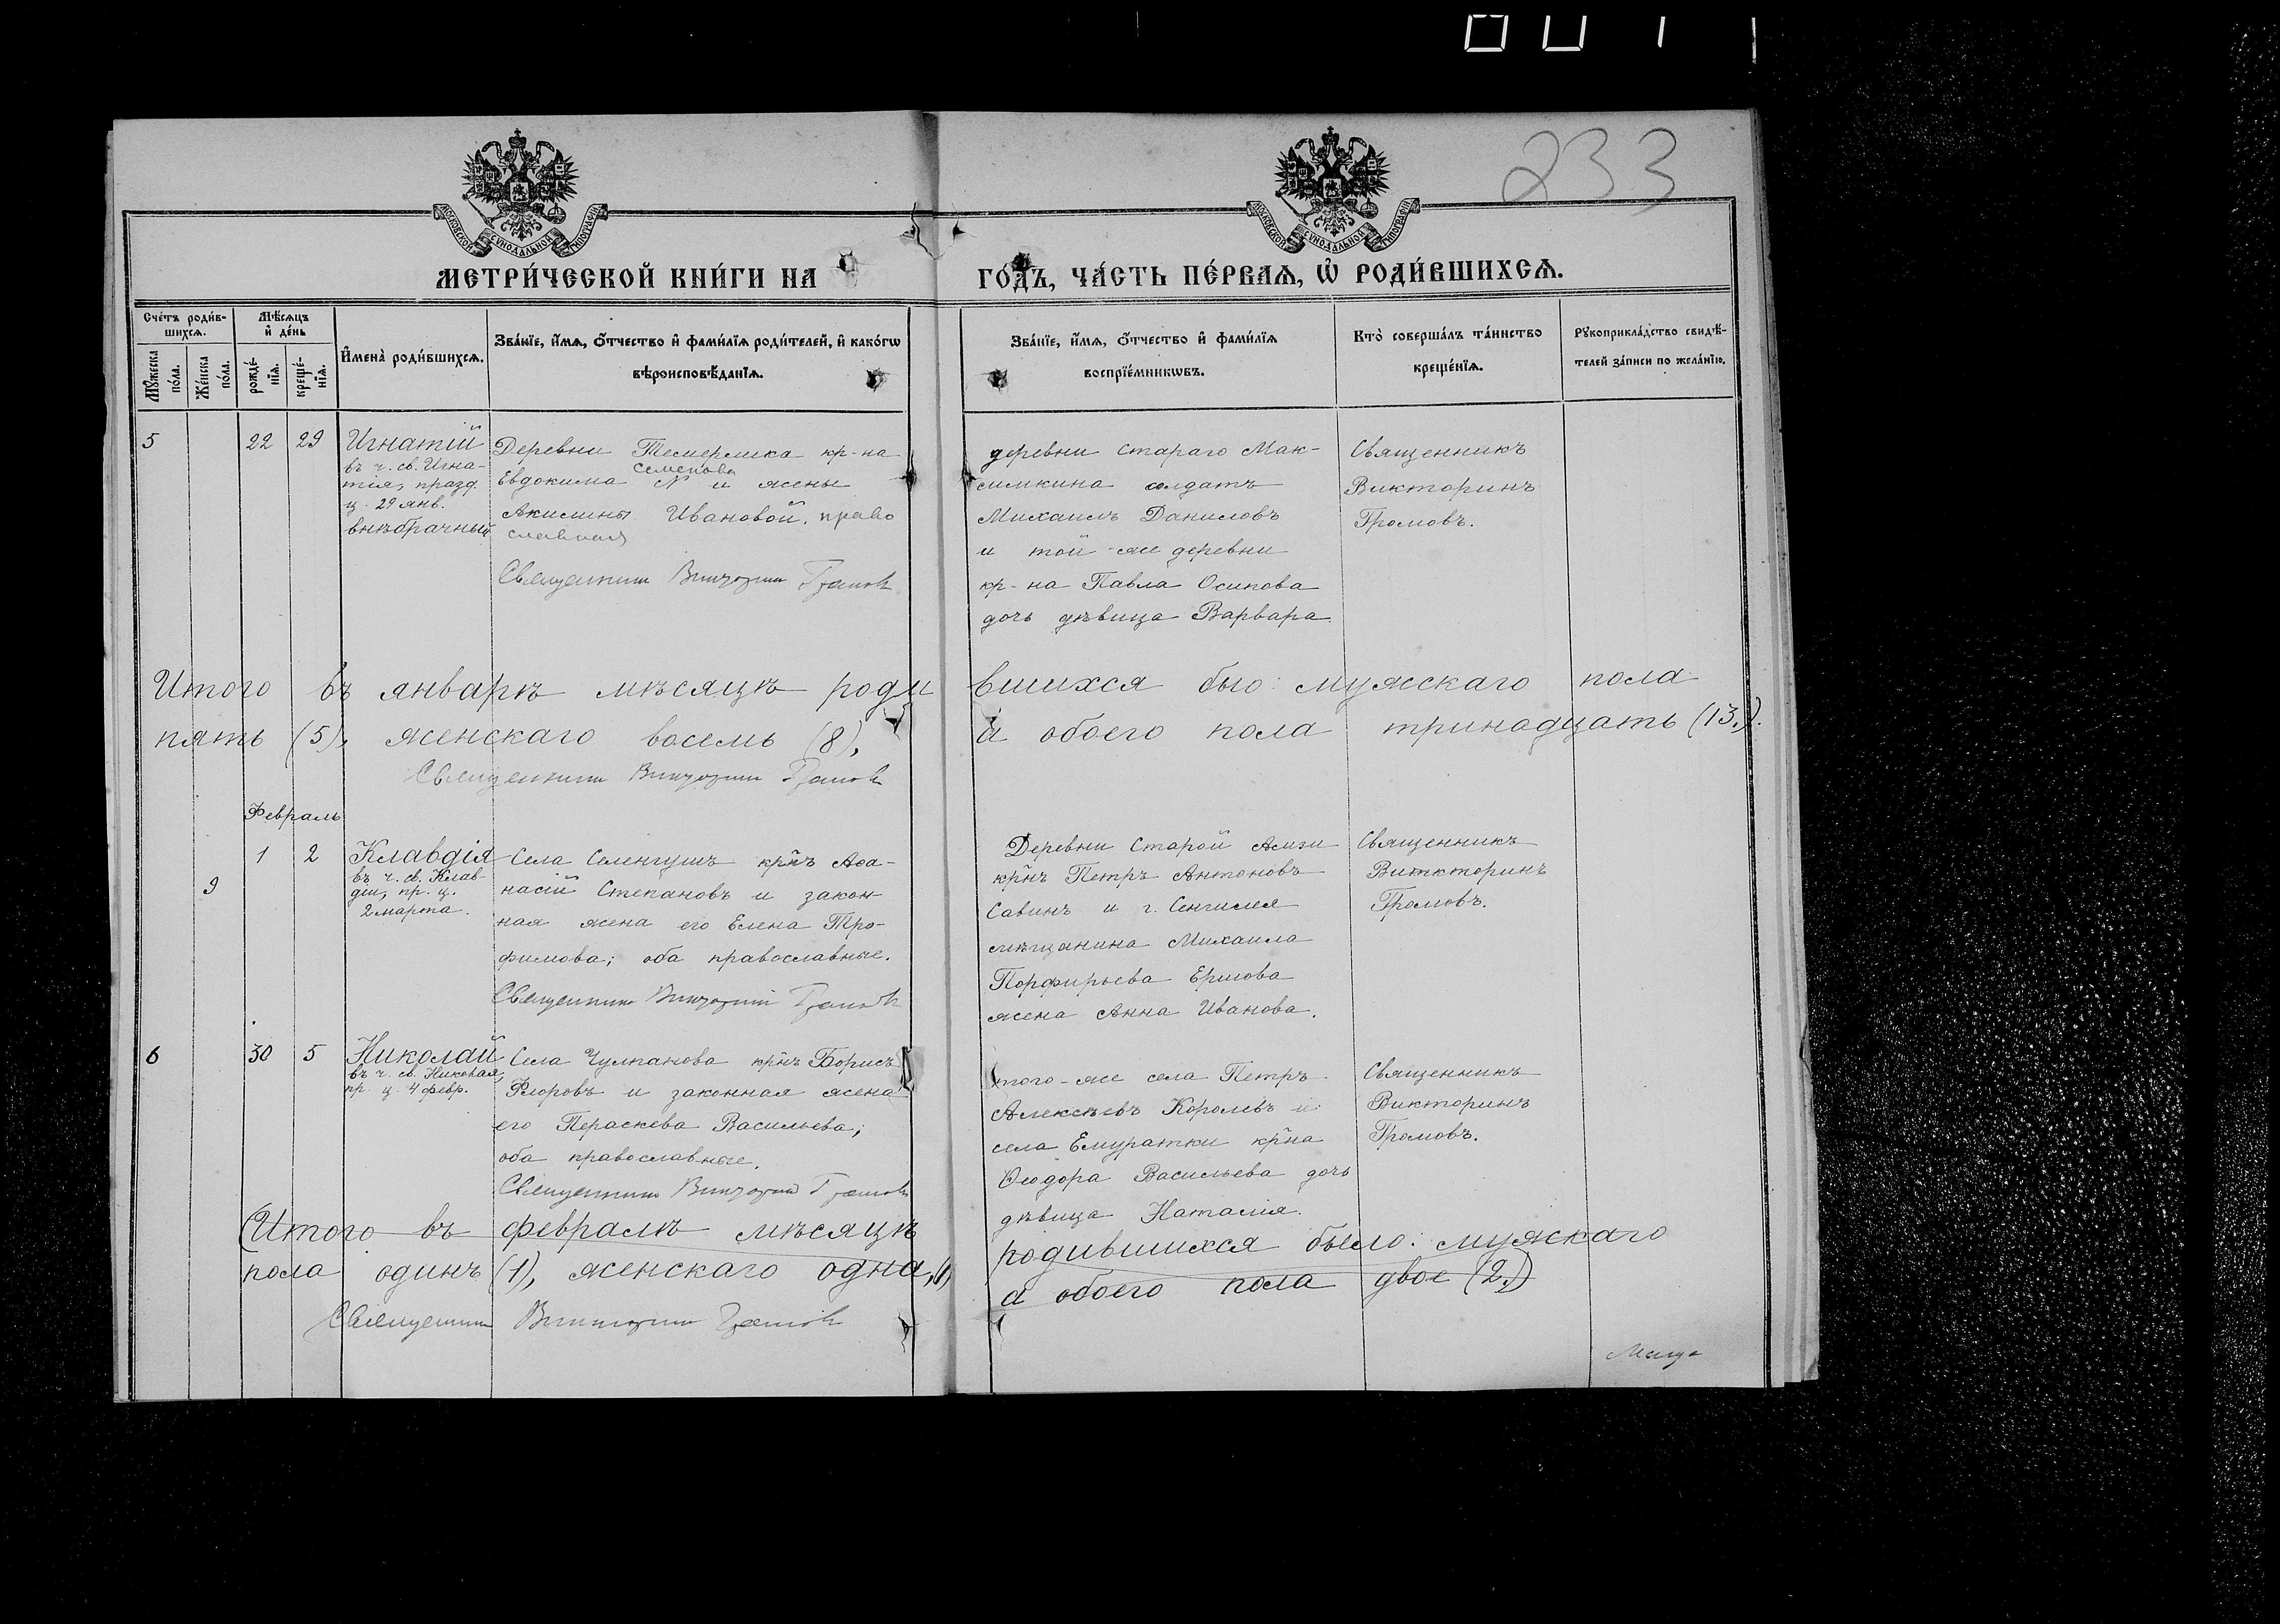 233
МОСКОВСКОЙ СѴНОДАЛЬНОЙ ТИПОГРАФІИ
МОСКОВСКОЙ СѴНОДАЛЬНОЙ ТИПОГРАФІИ
МЕТРИ́ЧЕСКОЙ КНИ́ГИ НА ГО́ДЪ, ЧА́СТЬ ПЕ́РВАѦ, Ѡ҆ РОДИ́ВШИХСѦ.
Сче́тъ роди́в-
шихсѧ.
Мꙋ́жеска по́ла.
Же́нска по́ла.
Мѣ́сѧцъ и҆ де́нь
рожде́-
нїѧ.
креще́-
нїѧ.
И҆мена̀ роди́вшихсѧ.
Зва́нїе, и҆́мѧ, ѻ҆́тчество и҆ фами́лїѧ роди́телей, и҆ како́гѡ
вѣроисповѣ́данїѧ.
Зва́нїе, и҆́мѧ, ѻ҆́тчество и҆ фами́лїѧ
воспрїе́мникѡвъ.
Кто̀ соверша́лъ та́инство
креще́нїѧ.
Рꙋкоприкла́дство свидѣ́-
телей за́писи по жела́нїю.
5
22
29
Игнатій
въ ч. св. Игна-
тія, празд.
ц. 29 янв.
внѣбрачный
Деревни кр-на
Семенова
Евдокима и жены
Акилины Ивановой, право
славная
Священник Викторин Громов
деревни Стараго Мак-
симкина солдатъ
Михаилъ Даниловъ
и той-же деревни
кр-на Павла Осипова
дочь дѣвица Варвара.
Священникъ
Викторинъ
Громовъ.
Итого въ январѣ мѣсяцѣ родившихся было: мужскаго пола
пять (5), женскаго восемь (8), а обоего пола тринадцать (13.).
Священник Викторин Громов
Февраль
9
1
2
Клавдія
въ ч. св. Клав-
діи, пр. ц.
2 марта.
Села Селенгушъ кр̃нъ Аѳа-
насій Степановъ и закон-
ная жена его Елена Тро-
фимова; оба православные.
Священник Викторин Громов
Деревни Старой Амзи
кр̃нъ Петръ Антоновъ
Савинъ и г. Сенгилея
мѣщанина Михаила
Порфирьева Ершова
жена Анна Иванова.
Священникъ
Виткторинъ
Громовъ.
6
30
5
Николай
въ ч. св. Николая,
пр. ц. 4 февр.
Села Чулпанова кр̃нъ Борисъ
Флоровъ и законная жена
его Пераскева Васильева;
оба православные.
Священник Викторин Громов
того-же села Петръ
Алексѣевъ Королевъ и
села Емуратки кр̃на
Ѳеодора Васильева дочь
дѣвица Наталія.
Священникъ
Викторинъ
Громовъ.
Итого въ февралѣ мѣсяцѣ родившихся было: мужскаго
пола одинъ (1), женскаго одна, (1) а обоего пола двое (2.)
Священник Викторин Громов